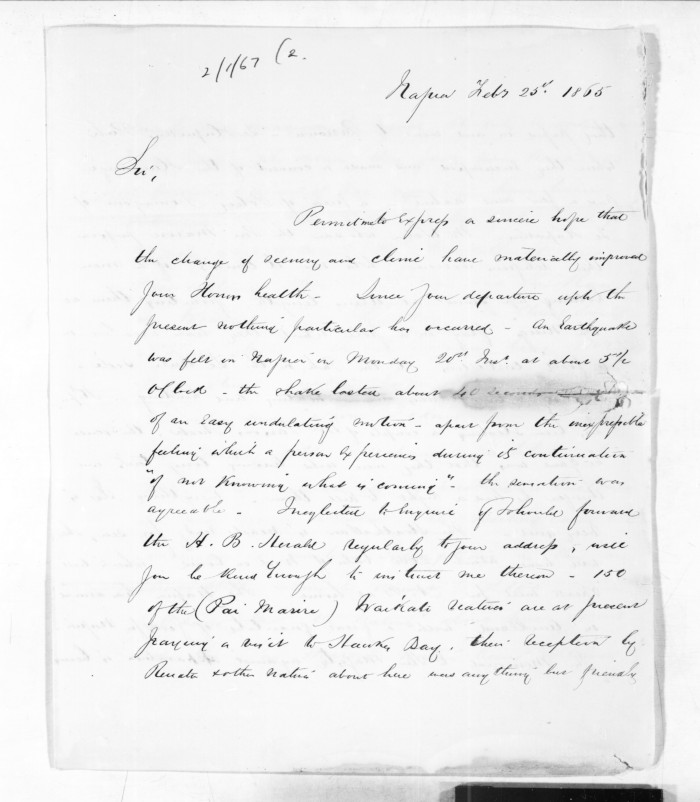 2/1/67 (2.
Napier Feby 25th. 1865
Sir,
Permit me to Express a sincere hope that
the change of scenery and clime have materially improved
Your Honors health - Since Your departure up to the
present nothing particular has occurred - An Earthquake
was felt in Napier on Monday 20th Inst. at about 5 1/2
O'Clock - the shake lasted about 40 seconds
of an Easy undulating motion - apart from the inexpressible
feeling which a person Experiences during its continuation
"of not Knowing what is coming" - the sensation was
agreeable - I neglected to Enquire if I should forward
the H. B. Herald regularly to your address, will
You be Kind Enough to instruct me thereon - 150
of the (Pai Marire) Waikato Natives are at present
paying a visit to Hawkes Bay, their reception by
Renata & other Natives about here was anything but friendly